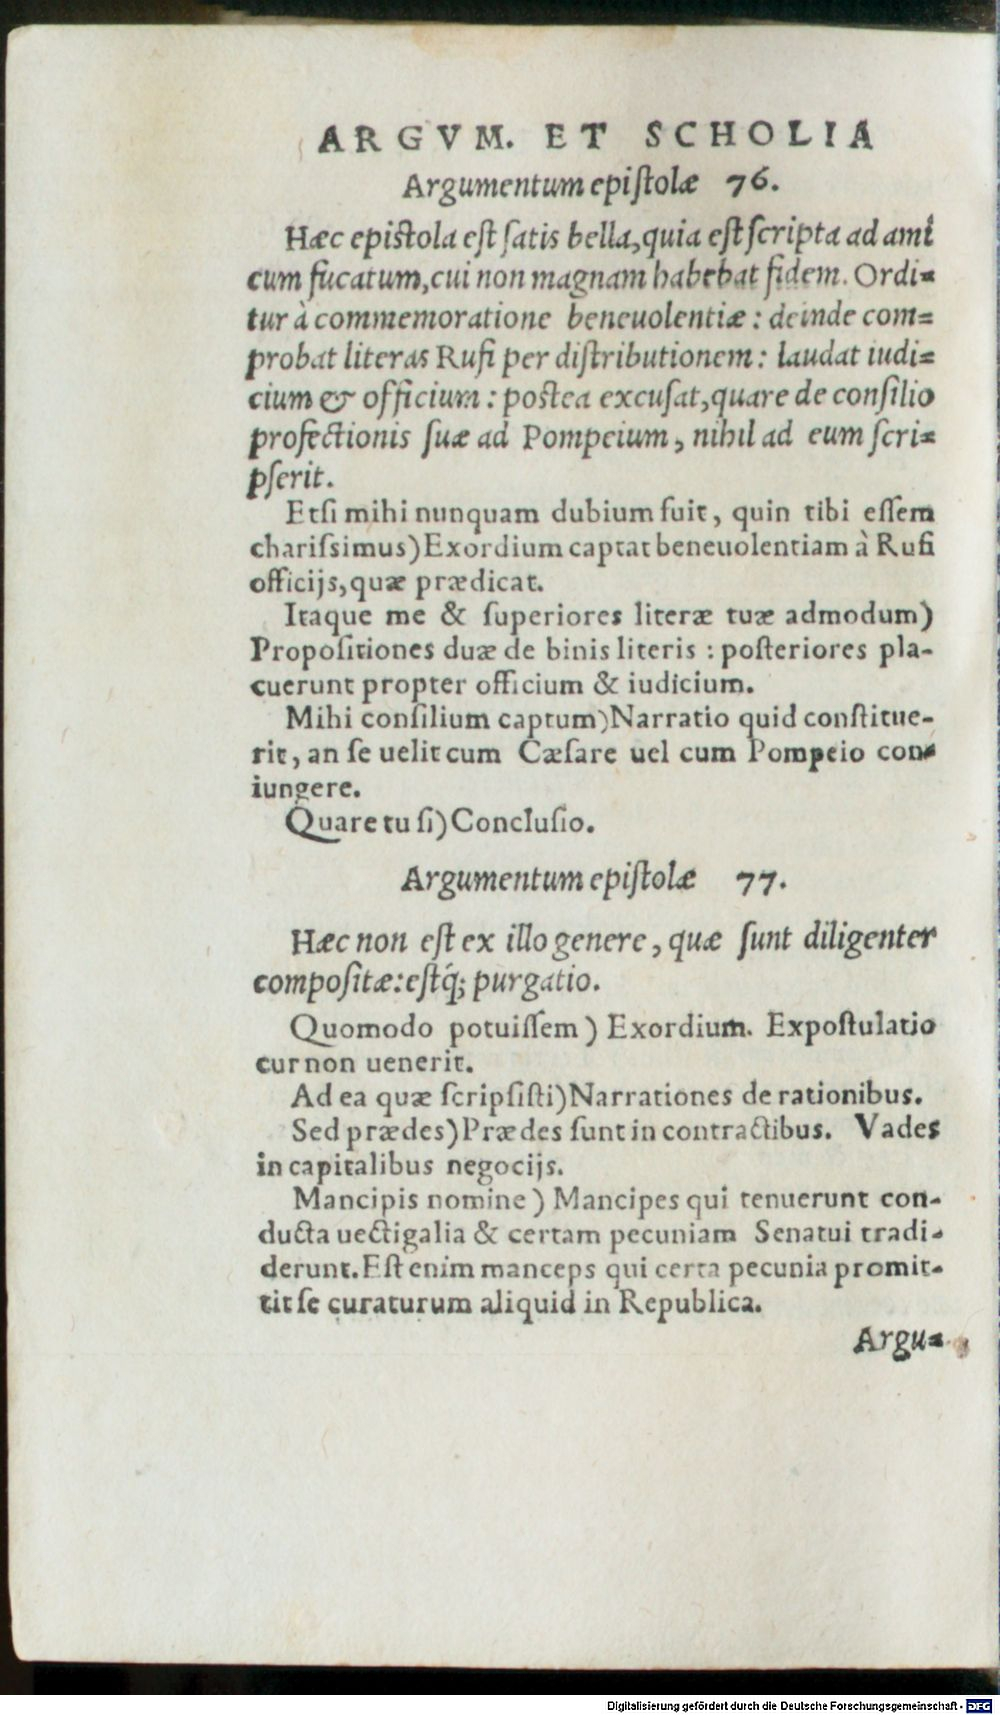 ARGVM. ET SCHOLIA
Argumentum epiſtolæ 76.
Hæc epistola eſt ſatis bella, quia eſt ſcripta ad ami
cum fucatum, cui non magnam habebat fidem. Ordi=
tur à commemoratione beneuolentiæ: deinde com=
probat literas Rufi per diſtributionem: laudat iudi=
cium & officium: postea excuſat, quare de conſilio
profectionis ſuæ ad Pompeium, nihil ad eum ſcri=
pſerit.
Etſi mihi nunquam dubium fuit, quin tibi eſſem
chariſsimus) Exordium captat beneuolentiam à Rufi
officijs, quæ prædicat.
Itaque me & ſuperiores literæ tuæ admodum)
Propoſitiones duæ de binis literis: poſteriores pla-
cuerunt propter officium & iudicium.
Mihi conſilium captum) Narratio quid conſtitue-
rit, an ſe uelit cum Cæſare uel cum Pompeio con-
iungere.
Quare tu ſi) Concluſio.
Argumentum epiſtolæ 77.
Hæc non eſt ex illo genere, quæ ſunt diligenter
compoſitæ: eſtq́; purgatio.
Quomodo potuiſſem) Exordium. Expoſtulatio
cur non uenerit.
Ad ea quæ ſcripſiſti) Narrationes de rationibus.
Sed prædes) Prædes ſunt in contractibus. Vades
in capitalibus negocijs.
Mancipis nomine) Mancipes qui tenuerunt con-
ducta uectigalia & certam pecuniam Senatui tradi-
derunt. Eſt enim manceps qui certa pecunia promit-
tit ſe curaturum aliquid in Republica.
Argu=
Digitalisierung gefördert durch die Deutsche Forschungsgemeinschaft - DFG